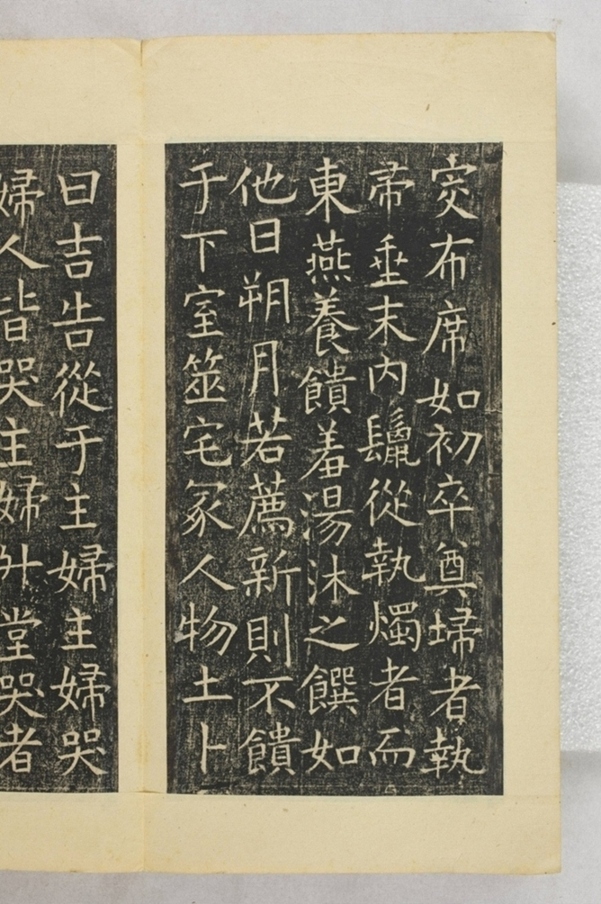 窔布席如初卒奠埽者執
帚垂末内鬣從執燭者而
東燕養饋羞湯沐之饌如
他日朔月若薦新則不饋
于下室筮宅冢人物土卜
日吉告從于主婦主婦哭
婦人皆哭主婦升堂哭者